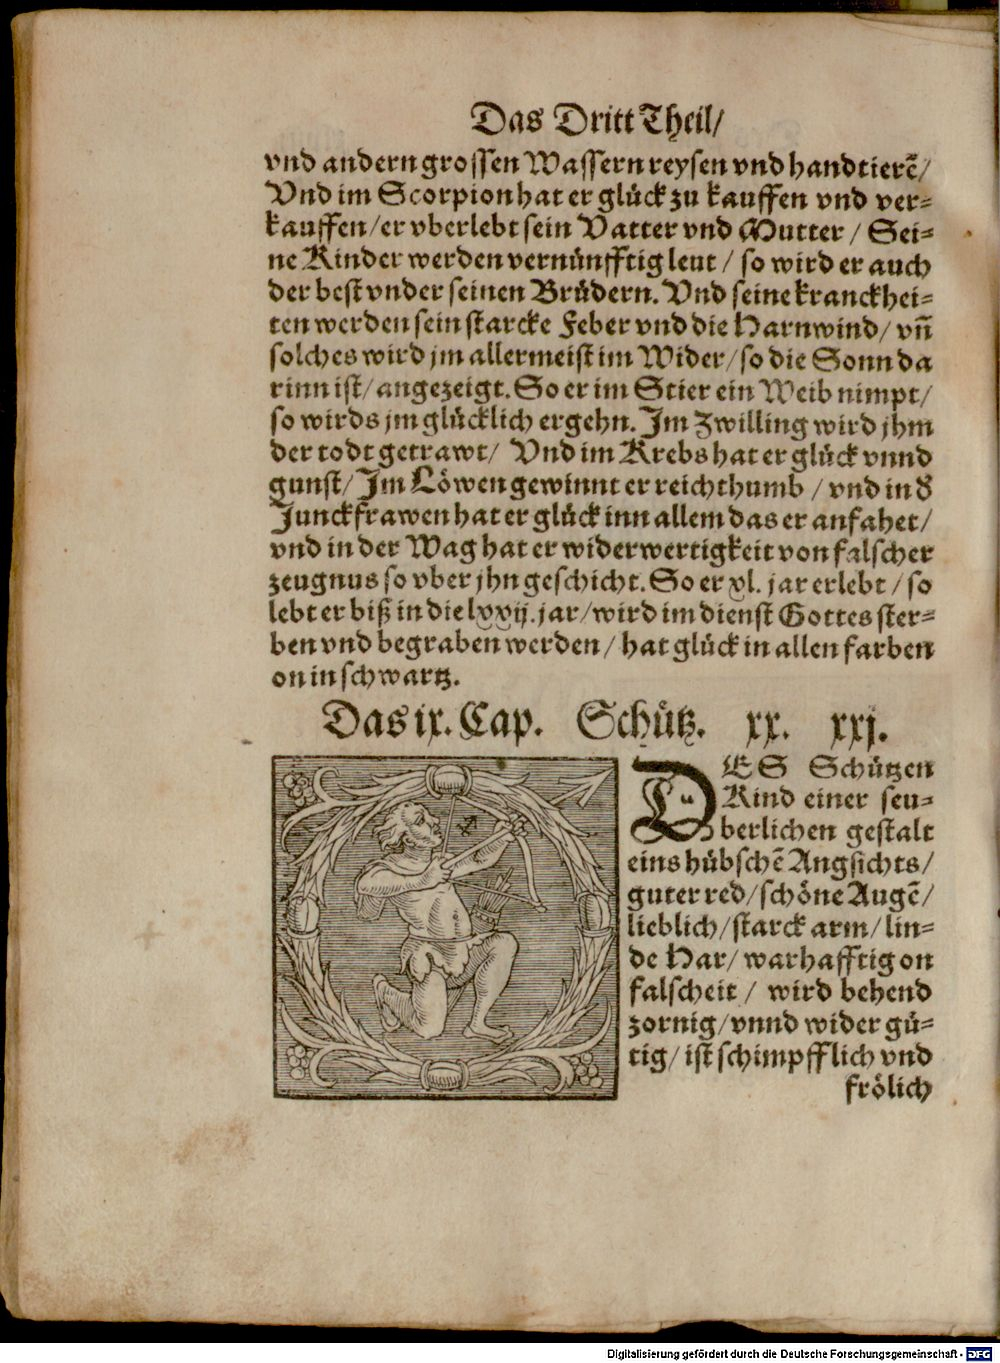 Das Dritt Theil/
vnd andern grossen Wassern reysen vnd handtierē/
Vnd im Scorpion hat er glück zu kauffen vnd ver=
kauffen/er vberlebt sein Vatter vnd Mutter / Sei=
ne Kinder werden vernünfftig leut / so wird er auch
der best vnder seinen Brüdern. Vnd seine kranckhei=
ten werden sein starcke Feber vnd die Harnwind/ vñ
solches wird jm allermeist im Wider/so die Sonn da
rinn ist/ angezeigt. So er im Stier ein Weib nimpt/
so wirds jm glücklich ergehn. Im Zwilling wird jhm
der todt getrawt/ Vnd im Krebs hat er glück vnnd
gunst/ Im Löwen gewinnt er reichthumb / vnd in d̕
Junckfrawen hat er glück inn allem das er anfahet/
vnd in der Wag hat er widerwertigkeit von falscher
zeugnus so vber jhn geschicht. So er xl. jar erlebt / so
lebt er biß in die lxxij. jar/wird im dienst Gottes ster=
ben vnd begraben werden / hat glück in allen farben
on in schwartz.
Das ix. Cap. Schütz. xx. xxj.
DES Schützen
Kind einer seu=
berlichen gestalt
eins hübschē Angsichts/
guter red/schöne Augē/
lieblich/starck arm/lin=
de Har/ warhafftig on
falscheit / wird behend
zornig/vnnd wider gü=
tig/ ist schimpfflich vnd
frölich
Digitalisierung gefördert durch die Deutsche Forschungsgemeinschaft - DFG